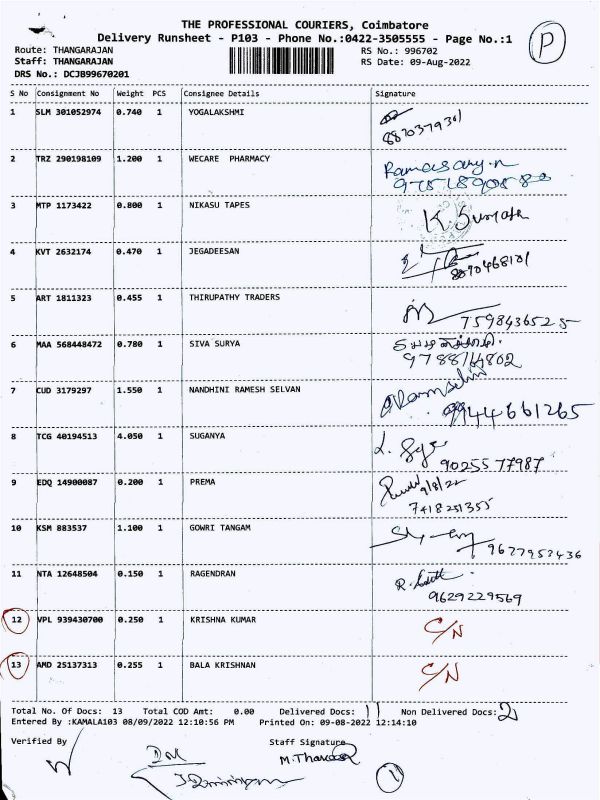 THE PROFESSIONAL COURIERS, Coimbatore
Delivery Runsheet - P103 - Phone No.:0422-3505555 - Page No.:1
P
Route: THANGARAJAN RS No.: 996702
Staff: THANGARAJAN RS Date: 09-Aug-2022
DRS No.: DCJB99670201
S No Consignment No Weight PCS Consignee Details Signature
1 SLM 301052974 0.740 1 YOGALAKSHMI
2 TRZ 290198109 1.200 1 WECARE PHARMACY
3 MTP 1173422 0.800 1 NIKASU TAPES
4 KVT 2632174 0.470 1 JEGADEESAN
5 ART 1811323 0.455 1 THIRUPATHY TRADERS
7598436525
6 MAA 568448472 0.780 1 SIVA SURYA
7 CUD 3179297 1.550 1 NANDHINI RAMESH SELVAN
9944661265
8 TCG 40194513 4.050 1 SUGANYA
9025577987
9 EDQ 14900087 0.200 1 PREMA
9/8/22
7418251355
10 KSM 883537 1.100 1 GOWRI TANGAM
9677953436
11 NTA 12648504 0.150 1 RAGENDRAN
9629229569
12 VPL 939430700 0.250 1 KRISHNA KUMAR C/N
13 AMD 25137313 0.255 1 BALA KRISHNAN C/N
Total No. Of Docs: 13 Total COD Amt: 0.00 Delivered Docs: 11 Non Delivered Docs: 2
Entered By :KAMALA103 08/09/2022 12:10:56 PM Printed On: 09-08-2022 12:14:10
Verified By Staff Signature
1